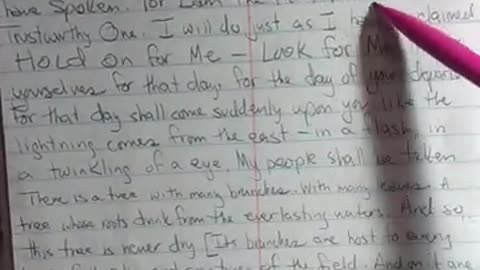 have Spoken. for I am the
Trustworthy One. I will do just as I claimed
Hold on for Me — Look for Me
yourselves for that day, for the day of your
For that day shall come suddenly upon you like the
lightning comes from the east — in a flash, in
a twinkling of a eye. My people shall be taken
There is a tree with many branches. With many leaves. A
tree whose roots drink from the everlasting waters. And so,
this tree is never dry [Its branches are host to every
of the field. And on it are